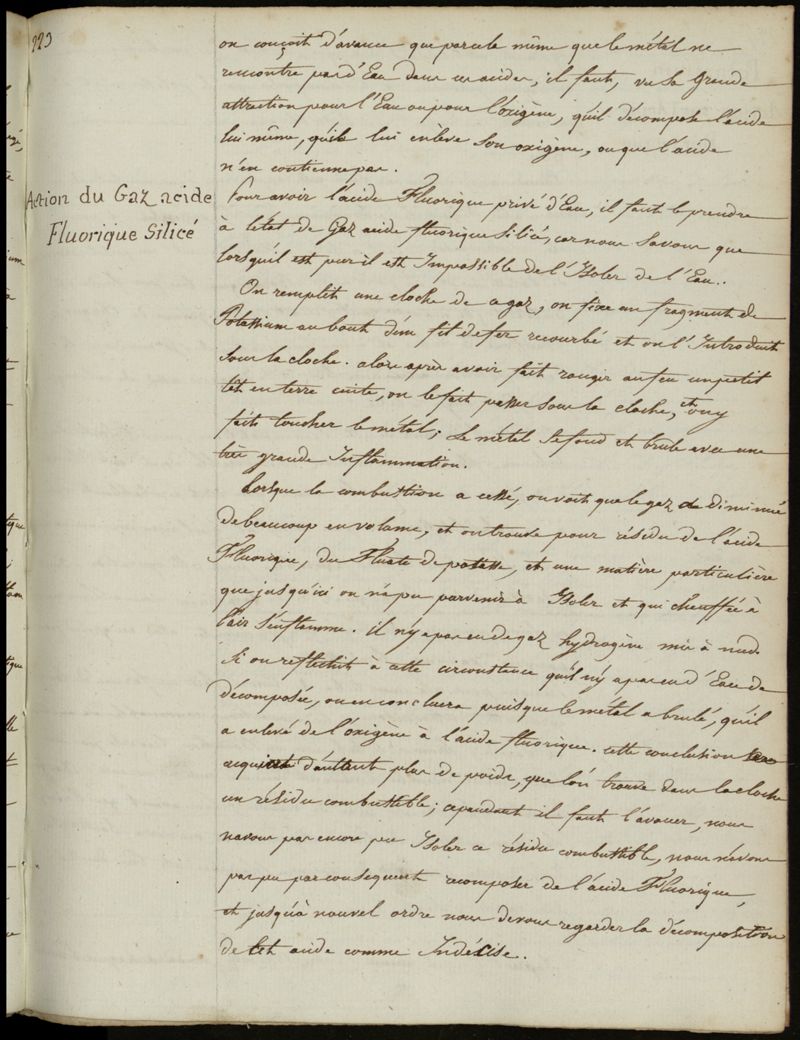 223
on conçoit d'avance que parcela même que le métal ne
rencontre pas d'Eau dans un acide, il faut, vu sa grande
attraction pour l'Eau ou pour l'oxigène, qu'il décompose l'acide
lui même, qu'il lui enlève son oxigène, ou que l'acide
n'en contienne pas.
Action du Gaz acide
Fluorique Silicé
Pour avoir l'acide Fluorique privé d'Eau, il faut le prendre
à létat de Gaz acide fluorique silicé, car nous savons que
lorsqu'il est pur il est Impossible de l'Isoler de l'Eau.
On remplit une cloche de ce gaz, on fixe un fragment de
Potassium au bout d'un fil de fer recourbé et on l'Introduit
sous la cloche. alors après avoir fait rougir au feu un petit
têt en terre cuite, on le fait passer sous la cloche, et on y
fait toucher le métal; Le métal se fond et brule avec une
très grande Inflammation.
Lorsque la combustion a cessé, on voit que le gaz a diminué
de beaucoup en volume, et on trouve pour résidu de l'acide
Fluorique, du Fluate de potasse, et une matière particulière
que jusqu'ici on n'a pu parvenir à Isoler et qui chauffée à
l'air s'enflamme. il n'y a pas eu de gaz hydrogène mis à nud.
Si on reflechit à cette circonstance qu'il n'y a pas eu d'Eau de
décomposée, on en concluera puisque le métal a brulé, qu'il
a enlevé de l'oxigène à l'acide fluorique. cette conclusion
acquiert d'autant plus de poids, que l'on trouve dans la cloche
un résidu combustible; cependant il faut l'avouer, nous
n'avons pas encore pu Isoler ce résidu combustible, nous n'avons
pas pu par consequent recomposer de l'acide Fluorique,
et jusqu'à nouvel ordre nous devons regarder la décomposition
de Cet acide comme Indécise.